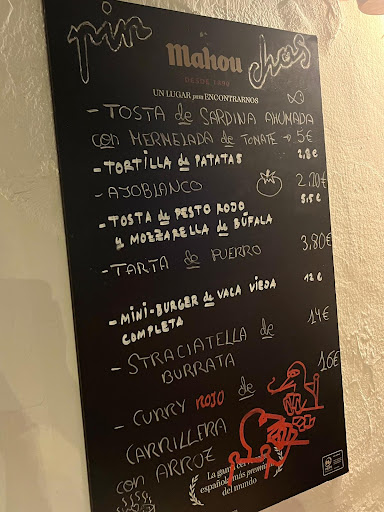 pin chos
Mahou
DESDE 1890
UN LUGAR para ENCONTRARNOS
- TOSTA de SARDINA AHUMADA
con MERMELADA de TOMATE → 5€
- TORTILLA de PATATAS 2,8€
- AJOBLANCO 2,20€
- TOSTA de PESTO ROJO 5,5€
y MOZZARELLA de BÚFALA
- TARTA de PUERRO 3,80€
- MINI-BURGER de VACA VIEJA 12€
COMPLETA
- STRACIATELLA de 14€
BURRATA
- CURRY ROJO de 16€
CARRILLERA
con ARROZ
La gama
española más
del mundo